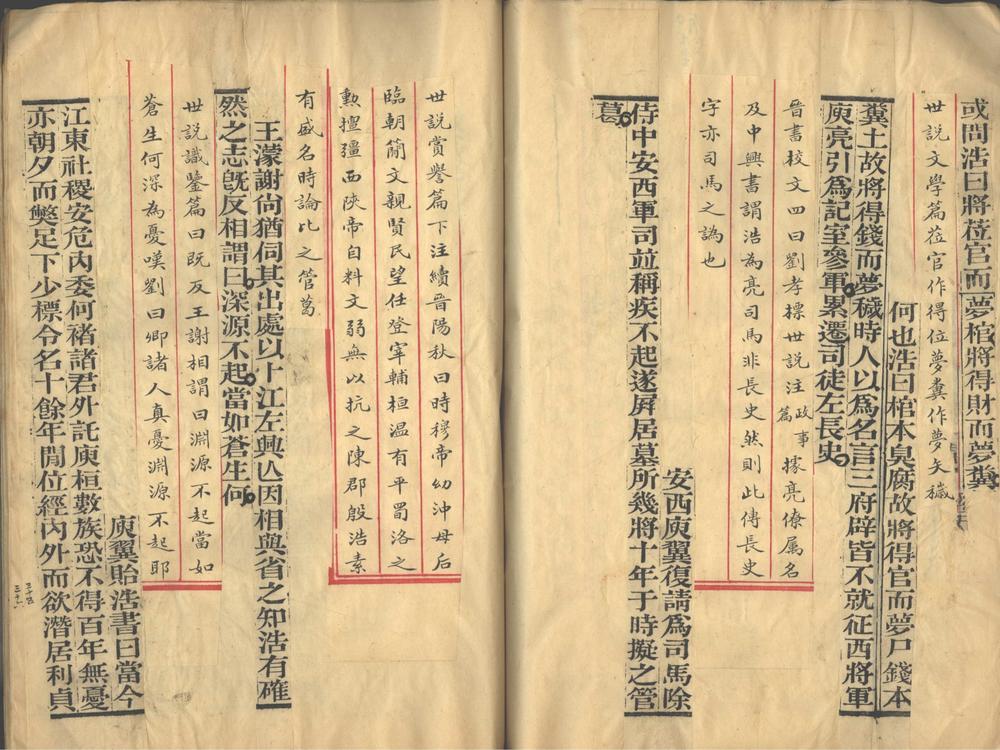 或問浩曰將莅官而夢棺將得財而夢糞
世說文學篇莅官作得位夢糞作夢矢穢
何也浩曰棺本臭腐故將得官而夢尸錢本
糞土故將得錢而夢穢時人以爲名言三府辟皆不就征西將軍
庾亮引爲記室參軍累遷司徒左長史
晉書校文四曰劉孝標世說注政事篇據亮僚属名
及中興書謂浩為亮司馬非長史然則此傳長史
字亦司馬之譌也
安西庾翼復請爲司馬除
侍中安西軍司並稱疾不起遂屛居墓所幾將十年于時擬之管
葛
世說賞譽篇下注續晉陽秋曰時穆帝幼沖母后
臨朝簡文親賢民望任登宰輔桓温有平蜀洛之
勲擅彊西陝帝自料文弱無以抗之陳郡殷浩素
有盛名時論比之管葛
王濛謝尙猶伺其出處以卜江左興亾因相與省之知浩有確
然之志旣反相謂曰深源不起當如蒼生何
世說識鑒篇曰既反王謝相謂曰淵源不起當如
蒼生何深為憂嘆劉曰卿諸人真憂淵源不起耶
庾翼貽浩書曰當今
江東社稷安危內委何褚諸君外託庾桓數族恐不得百年無憂
亦朝夕而弊足下少標令名十餘年閒位經內外而欲潛居利貞